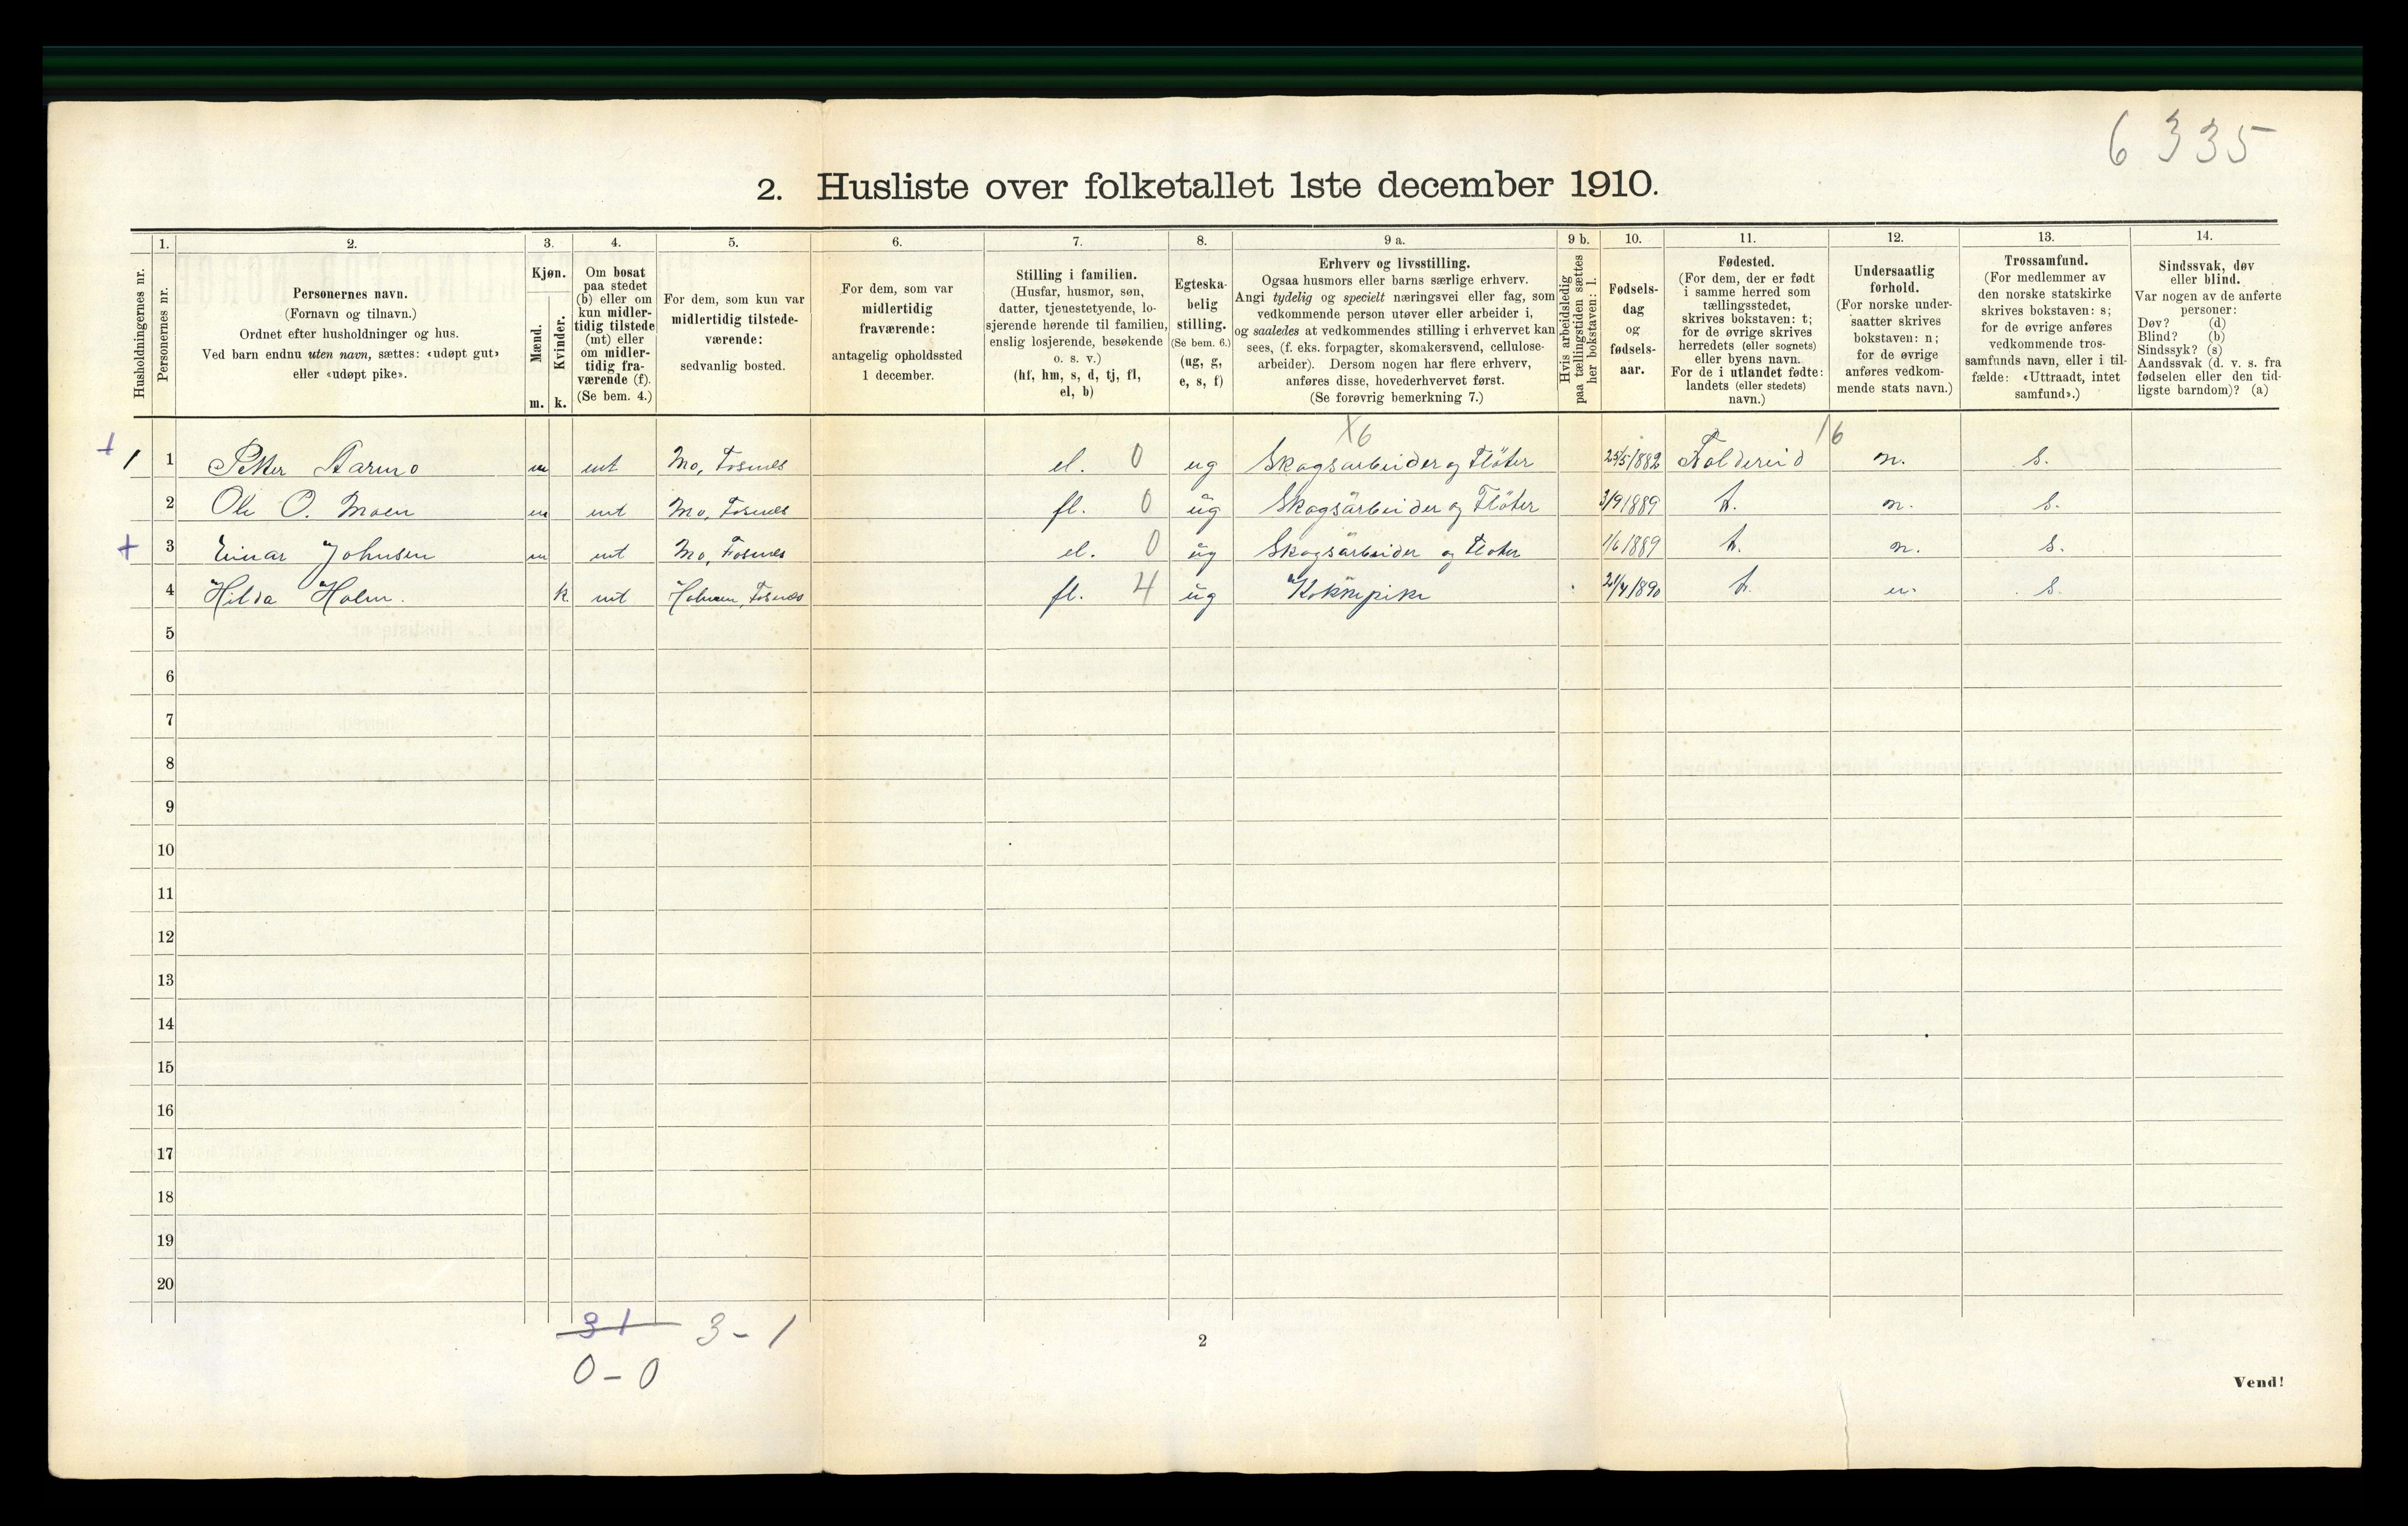 6 335
2. Husliste over folketallet 1ste december 1910.
Husholdningernes nr.
1.
Personernes nr.
2.
Personernes navn.
(Fornavn og tilnavn.)
Ordnet efter husholdninger og hus.
Ved barn endnu uten navn, sættes: «udøpt gut»
eller «udøpt pike».
3.
Kjøn.
Mænd.
Kvinder.
m. k.
4.
Om bosat
paa stedet
(b) eller om
kun midler-
tidig tilstede
(mt) eller
om midler-
tidig fra-
værende (f).
(Se bem. 4.)
5.
For dem, som kun var
midlertidig tilstede-
værende:
sedvanlig bosted.
6.
For dem, som var
midlertidig
fraværende:
antagelig opholdssted
1 december.
7.
Stilling i familien.
(Husfar, husmor, søn,
datter, tjenestetyende, lo-
sjerende hørende til familien,
enslig losjerende, besøkende
o. s. v.)
(hf, hm, s, d, tj, fl,
el, b)
8.
Egteska-
belig
stilling.
(Se bem. 6.)
(ug, g,
e, s, f)
9 a.
Erhverv og livsstilling.
Ogsaa husmors eller barns særlige erhverv.
Angi tydelig og specielt næringsvei eller fag, som
vedkommende person utøver eller arbeider i,
og saaledes at vedkommendes stilling i erhvervet kan
sees, (f. eks. forpagter, skomakersvend, cellulose-
arbeider). Dersom nogen har flere erhverv,
anføres disse, hovederhvervet først.
(Se forøvrig bemerkning 7.)
9 b.
Hvis arbeidsledig
paa tællingstiden sættes
her bokstaven: l.
10.
Fødsels-
dag
og
fødsels-
aar.
11.
Fødested.
(For dem, der er født
i samme herred som
tællingsstedet,
skrives bokstaven: t;
for de øvrige skrives
herredets (eller sognets)
eller byens navn.
For de i utlandet fødte:
landets (eller stedets)
navn.)
12.
Undersaatlig
forhold.
(For norske under-
saatter skrives
bokstaven: n;
for de øvrige
anføres vedkom-
mende stats navn.)
13.
Trossamfund.
(For medlemmer av
den norske statskirke
skrives bokstaven: s;
for de øvrige anføres
vedkommende tros-
samfunds navn, eller i til-
fælde: «Uttraadt, intet
samfund».)
14.
Sindssvak, døv
eller blind.
Var nogen av de anførte
personer:
Døv? (d)
Blind? (b)
Sindssyk? (s)
Aandssvak (d. v. s. fra
fødselen eller den tid-
ligste barndom)? (a)
X6 16
+ 1 1 Petter Aarmo m mt Mo, Fosnes el. 0 ug Skogsarbeider og Fløter 25/5 1882 Foldereid n. s.
2 Ole O. Moen m mt Mo, Fosnes fl. 0 ug Skogsarbeider og Fløter 3/9 1889 t. n. s.
+ 3 Einar Johnsen m mt Mo, Fosnes el. 0 ug Skogsarbeider og Fløter 1/6 1889 t. n. s.
4 Hilda Holm. k mt Fosnes fl. 4 ug Kokkepike 21/4 1890 t. n. s.
5
6
7
8
9
10
11
12
13
14
15
16
17
18
19
20
3 1 3 - 1
0 - 0
2
Vend!